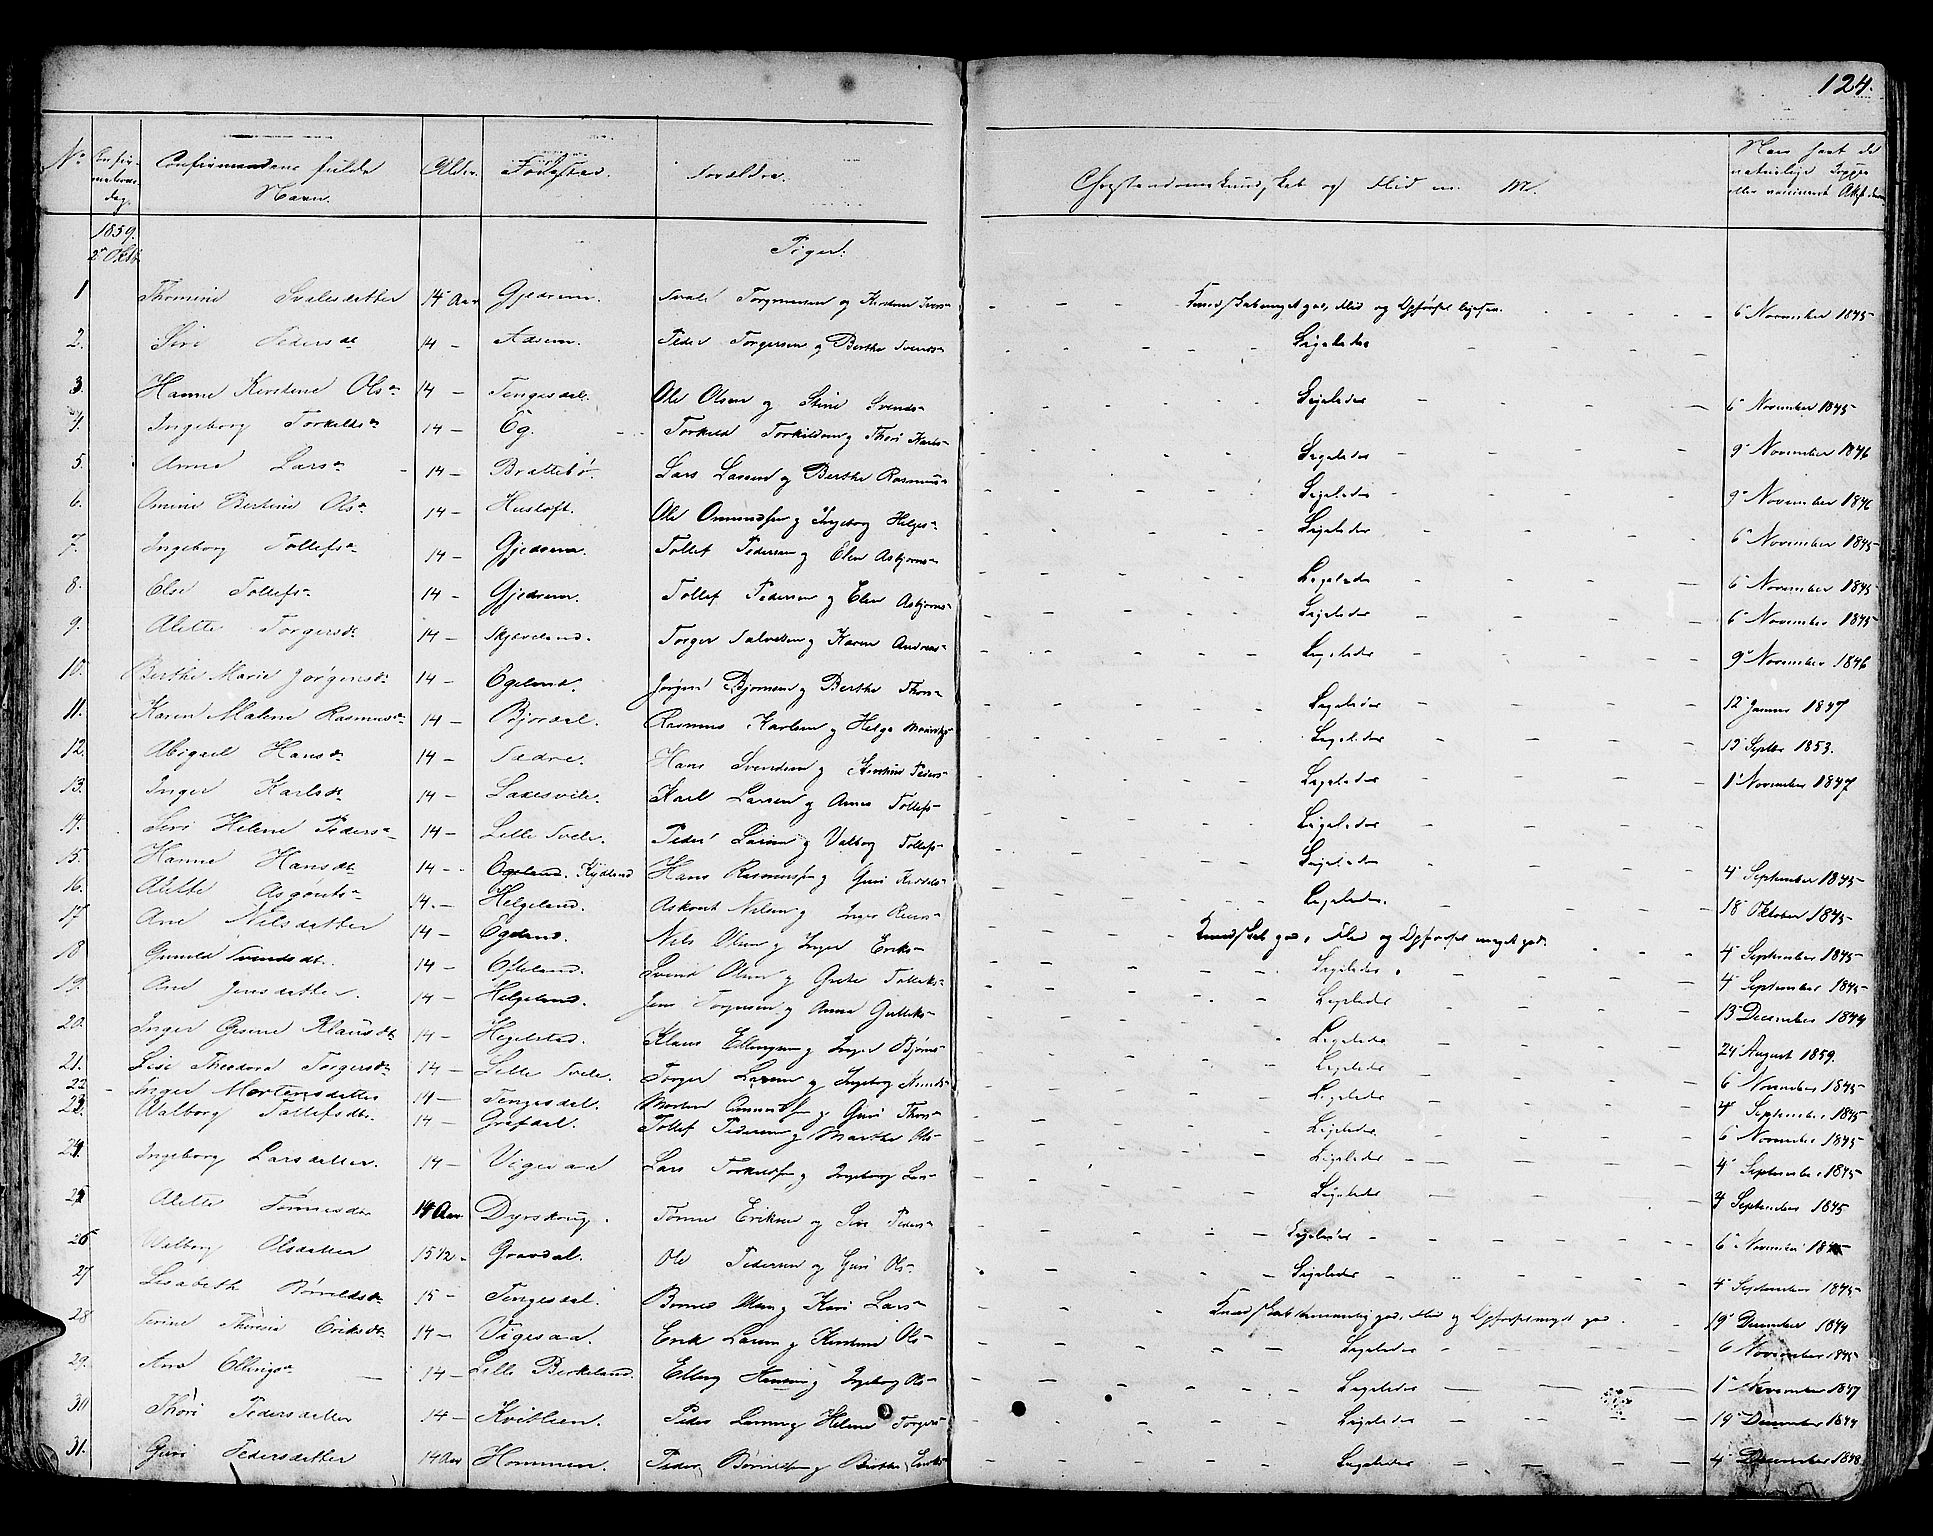 124.
No Confirmations dag. Confirmandens fulde Navn. Alder. Fødested. Forældre. Christendomskundskab og Flid m. M. Naar havt de naturlige Kopper eller vaccineret
1859. 2 Oktb.
Piger.
1 Thomine Svalesdatter 14 Aar Gjedrem. Kundskab meget god, Flid og Opførsel ligesaa. 6 November 1845
2. Siri Peders dtr 14 - Adsem. Peder Torgersen og Berthe Svends- Ligeledes
3. Hanne Kirstine Ols- 14 - Tengesdal. Ole Olsen og Stine Svends- Ligeledes 6 November 1845
4. Ingeborg Torkilds- 14 - Eg. Torkild Torkildsen og Thori Karls- Ligeledes 9 November 1846
5. Anne Lars- 14 - Brattebø. Lars Larsen og Berthe Rasmus- Ligeledes 9 November 1846
6. Omine Bertine Ols- 14 - Husloft. Ole Omundsen og Ingeborg Helges- Ligeledes 6 November 1845
7. Ingeborg Tollefs- 14 - Gjedrem. Tollef Pedersen og Elen Asbjørns- Ligeledes 6 November 1845
8. Else Tollefs- 14 - Gjedrem. Tollef Pedersen og Elen Asbjørns- Ligeledes 6 November 1845
9. Alette Torgersdr 14 - Skjæveland. Torger Salvesen og Karen Andreas- Ligeledes 9 November 1846
10. Berthe Marie Jørgensdr 14 - Egeland. Jørgen Bjørnsen og Berthe Thors- Ligeledes 12 Januar 1847
11. Karen Malene Rasmusdr 14 - Bjordal. Rasmus Karlsen og Helga Ligeledes 12 Septbr 1853.
12. Abigael Hansdr 14 - Hans Svendsen og Kirstine Peders- Ligeledes 1 November 1847
13. Inger Karlsdr 14 - Karl Larsen og Anne Tollefs- Ligeledes
14. Siri Helene Peders- 14 - Lille Svele. Peder Larsen og Valborg Tollefs- Ligeledes
15. Hanne Hansdr 14 - Egeland. Kydland Hans Rasmussen og Guri Ligeledes 4 September 1845
16. Alette Asgouts- 14. - Helgeland. Askout Nilsen og Inger Ligeledes. 18 Oktober 1845
17 Ane Nilsdatter 14 - Egeland. Nils Olsen og Inger Eriks- Kundskab god, Flid og Opførsel meget god. 4 September 1845
18 Gunild Svendsdt. 14 - Efteland. Svend Olsen og Grethe Tolleks- Ligeledes. 4 September 1845
19. Ane Jensdatter. 14 - Helgeland. Jens Torgersen og Anna Gulleks- Ligeledes 13 December 1844
20. Inger Gesine Klausdr 14 - Hegelstad. Klaus Ellingsen og Inger Bjørns- Ligeledes 24 August 1859.
21. Lise Theodora Torgersdr 14 - Lille Svele. Torger Larsen og Ingeborg Ligeledes 6 November 1845
22 Inger Mortensdatter 14 - Tengesdal. Morten Ommundsen og Guri Thors- Ligeledes 4 September 1845
23. Valborg Tollefsdtr. 14 - Grøfdal. Tollef Pedersen og Marthe Ols- Ligeledes 6 November 1845
24. Ingeborg Larsdatter. 14 - Vigesaa Lars Torkildsen og Ingeborg Lars- Ligeledes 4 September 1845
25 Alette Tønnesdr 14 Aar Dyrskoug. Tønnes Eriksen og Siri Peders- Ligeledes 4 September 1845
26 Valborg Olsdatter 15 1/2 - Gravdal. Ole Pedersen og Guri Ols- Ligeledes 6 November 1845
27 Lisabeth 15 - Tengesdal. Kari Lars- Ligeledes 4 September 1845
28 Serine Theresia Eriksdr 14 - Vigesaa. Erik Larsen og Kirstine Ols- Kundskab temmelig god, Flid og Opførsel meget god 19 December 1844
Ligeledes 6 November 1845
29. Ana Ellings- 14 - Lille Birkeland. Elling og Ingeborg Ols- Ligeledes 1 November 1847
30 Thori Pedersdatter 14 - Kvitlien. Peder Larsen og Helene Torgers- Ligeledes 19 December 1844
31. Guri Pedersdatter 14 Aar Hommen. Peder og Berthe Ligeledes 4 December 1848